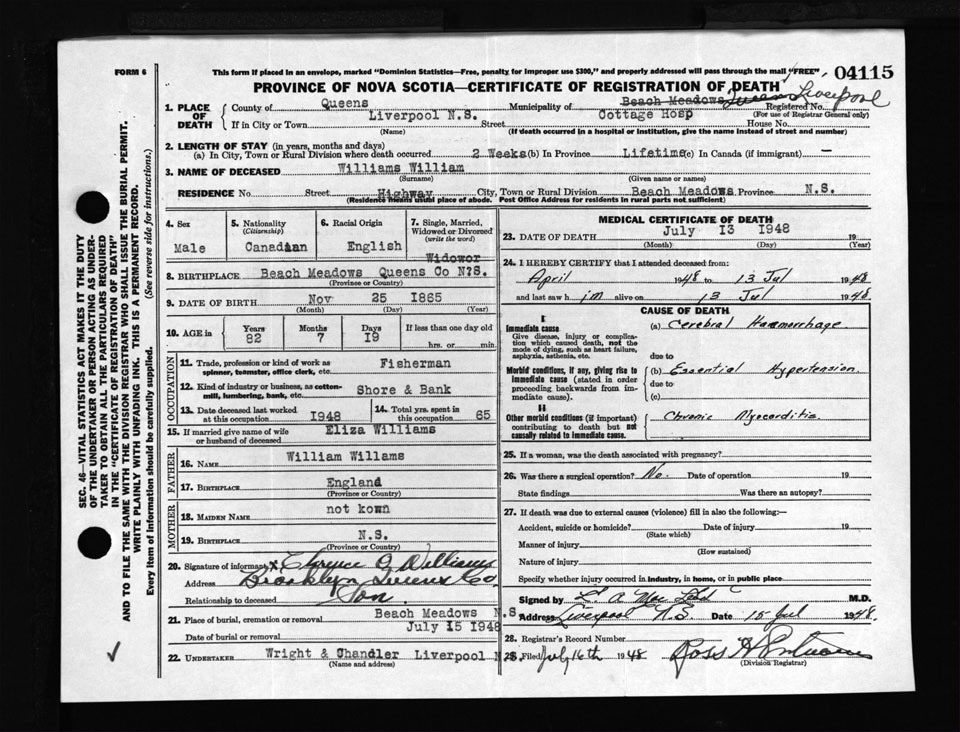 FORM 6
This form if placed in an envelope, marked "Dominion Statistics—Free, penalty for improper use $300," and properly addressed will pass through the mail "FREE"
04115
PROVINCE OF NOVA SCOTIA—CERTIFICATE OF REGISTRATION OF DEATH
1. PLACE OF DEATH
County of Queens Municipality of Beach Meadows Queens Liverpool Registered No.
(For use of Registrar General only)
If in City or Town Liverpool N.S. Street Cottage Hosp House No.
(Name) (If death occurred in a hospital or institution, give the name instead of street and number)
2. LENGTH OF STAY (in years, months and days)
(a) In City, Town or Rural Division where death occurred 2 Weeks (b) In Province Lifetime (c) In Canada (if immigrant) —
3. NAME OF DECEASED Williams William
(Surname) (Given name or names)
RESIDENCE No. Street Highway City, Town or Rural Division Beach Meadows Province N.S.
(Residence means usual place of abode. Post Office Address for residents in rural parts not sufficient)
4. Sex
Male
5. Nationality
(Citizenship)
Canadian
6. Racial Origin
English
7. Single, Married, Widowed or Divorced
(write the word)
Widowor
8. BIRTHPLACE Beach Meadows Queens Co N?S.
(Province or Country)
9. DATE OF BIRTH Nov 25 1865
(Month) (Day) (Year)
10. AGE in Years Months Days If less than one day old
82 7 I9 hrs. or min.
OCCUPATION
11. Trade, profession or kind of work as spinner, teamster, office clerk, etc. Fisherman
12. Kind of industry or business, as cotton-mill, lumbering, bank, etc. Shore & Bank
13. Date deceased last worked at this occupation 1948
14. Total yrs. spent in this occupation 65
15. If married give name of wife or husband of deceased Eliza Williams
FATHER
16. NAME William Willams
17. BIRTHPLACE England
(Province or Country)
MOTHER
18. MAIDEN NAME not kown
19. BIRTHPLACE N.S.
(Province or Country)
20. Signature of informant x Williams
Address Brooklyn Queens Co
Relationship to deceased Son.
21. Place of burial, cremation or removal Beach Meadows N.S
Date of burial or removal July I5 1948
22. UNDERTAKER Wright & Chandler Liverpool N.S.
(Name and address)
MEDICAL CERTIFICATE OF DEATH
23. DATE OF DEATH July I3 1948 19
(Month) (Day) (Year)
24. I HEREBY CERTIFY that I attended deceased from:
April 1948 to 13 Jul 1948
and last saw h im alive on 13 Jul 1948
CAUSE OF DEATH
I
Immediate cause
Give disease, injury or complication which caused death, not the mode of dying, such as heart failure, asphyxia, asthenia, etc.
(a) Cerebral Haemorrhage
due to
Morbid conditions, if any, giving rise to immediate cause (stated in order proceeding backwards from immediate cause).
(b) Essential Hypertension.
due to
(c)
II
Other morbid conditions (if important) contributing to death but not causally related to immediate cause.
Chronic Myocarditis
25. If a woman, was the death associated with pregnancy?
26. Was there a surgical operation? No. Date of operation 19
State findings Was there an autopsy?
27. If death was due to external causes (violence) fill in also the following:—
Accident, suicide or homicide? Date of injury 19
(State which)
Manner of injury
(How sustained)
Nature of injury
Specify whether injury occurred in industry, in home, or in public place
Signed by M.D.
Address Liverpool N.S. Date 15 Jul 1948.
28. Registrar's Record Number
29. Filed July 16th 1948 Ross
(Division Registrar)
SEC. 46—VITAL STATISTICS ACT MAKES IT THE DUTY
OF THE UNDERTAKER OR PERSON ACTING AS UNDER-
TAKER TO OBTAIN ALL THE PARTICULARS REQUIRED
IN THE "CERTIFICATE OF REGISTRATION OF DEATH"
AND TO FILE THE SAME WITH THE DIVISION REGISTRAR WHO SHALL ISSUE THE BURIAL PERMIT.
WRITE PLAINLY WITH UNFADING INK. THIS IS A PERMANENT RECORD.
Every item of information should be carefully supplied. (See reverse side for instructions.)